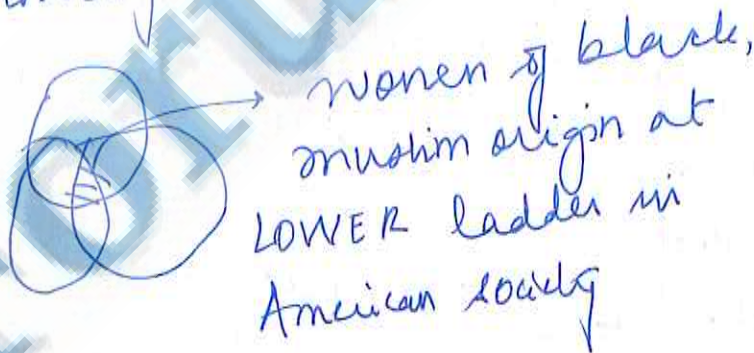 women of black,
muslim origin at
LOWER ladder in
American society